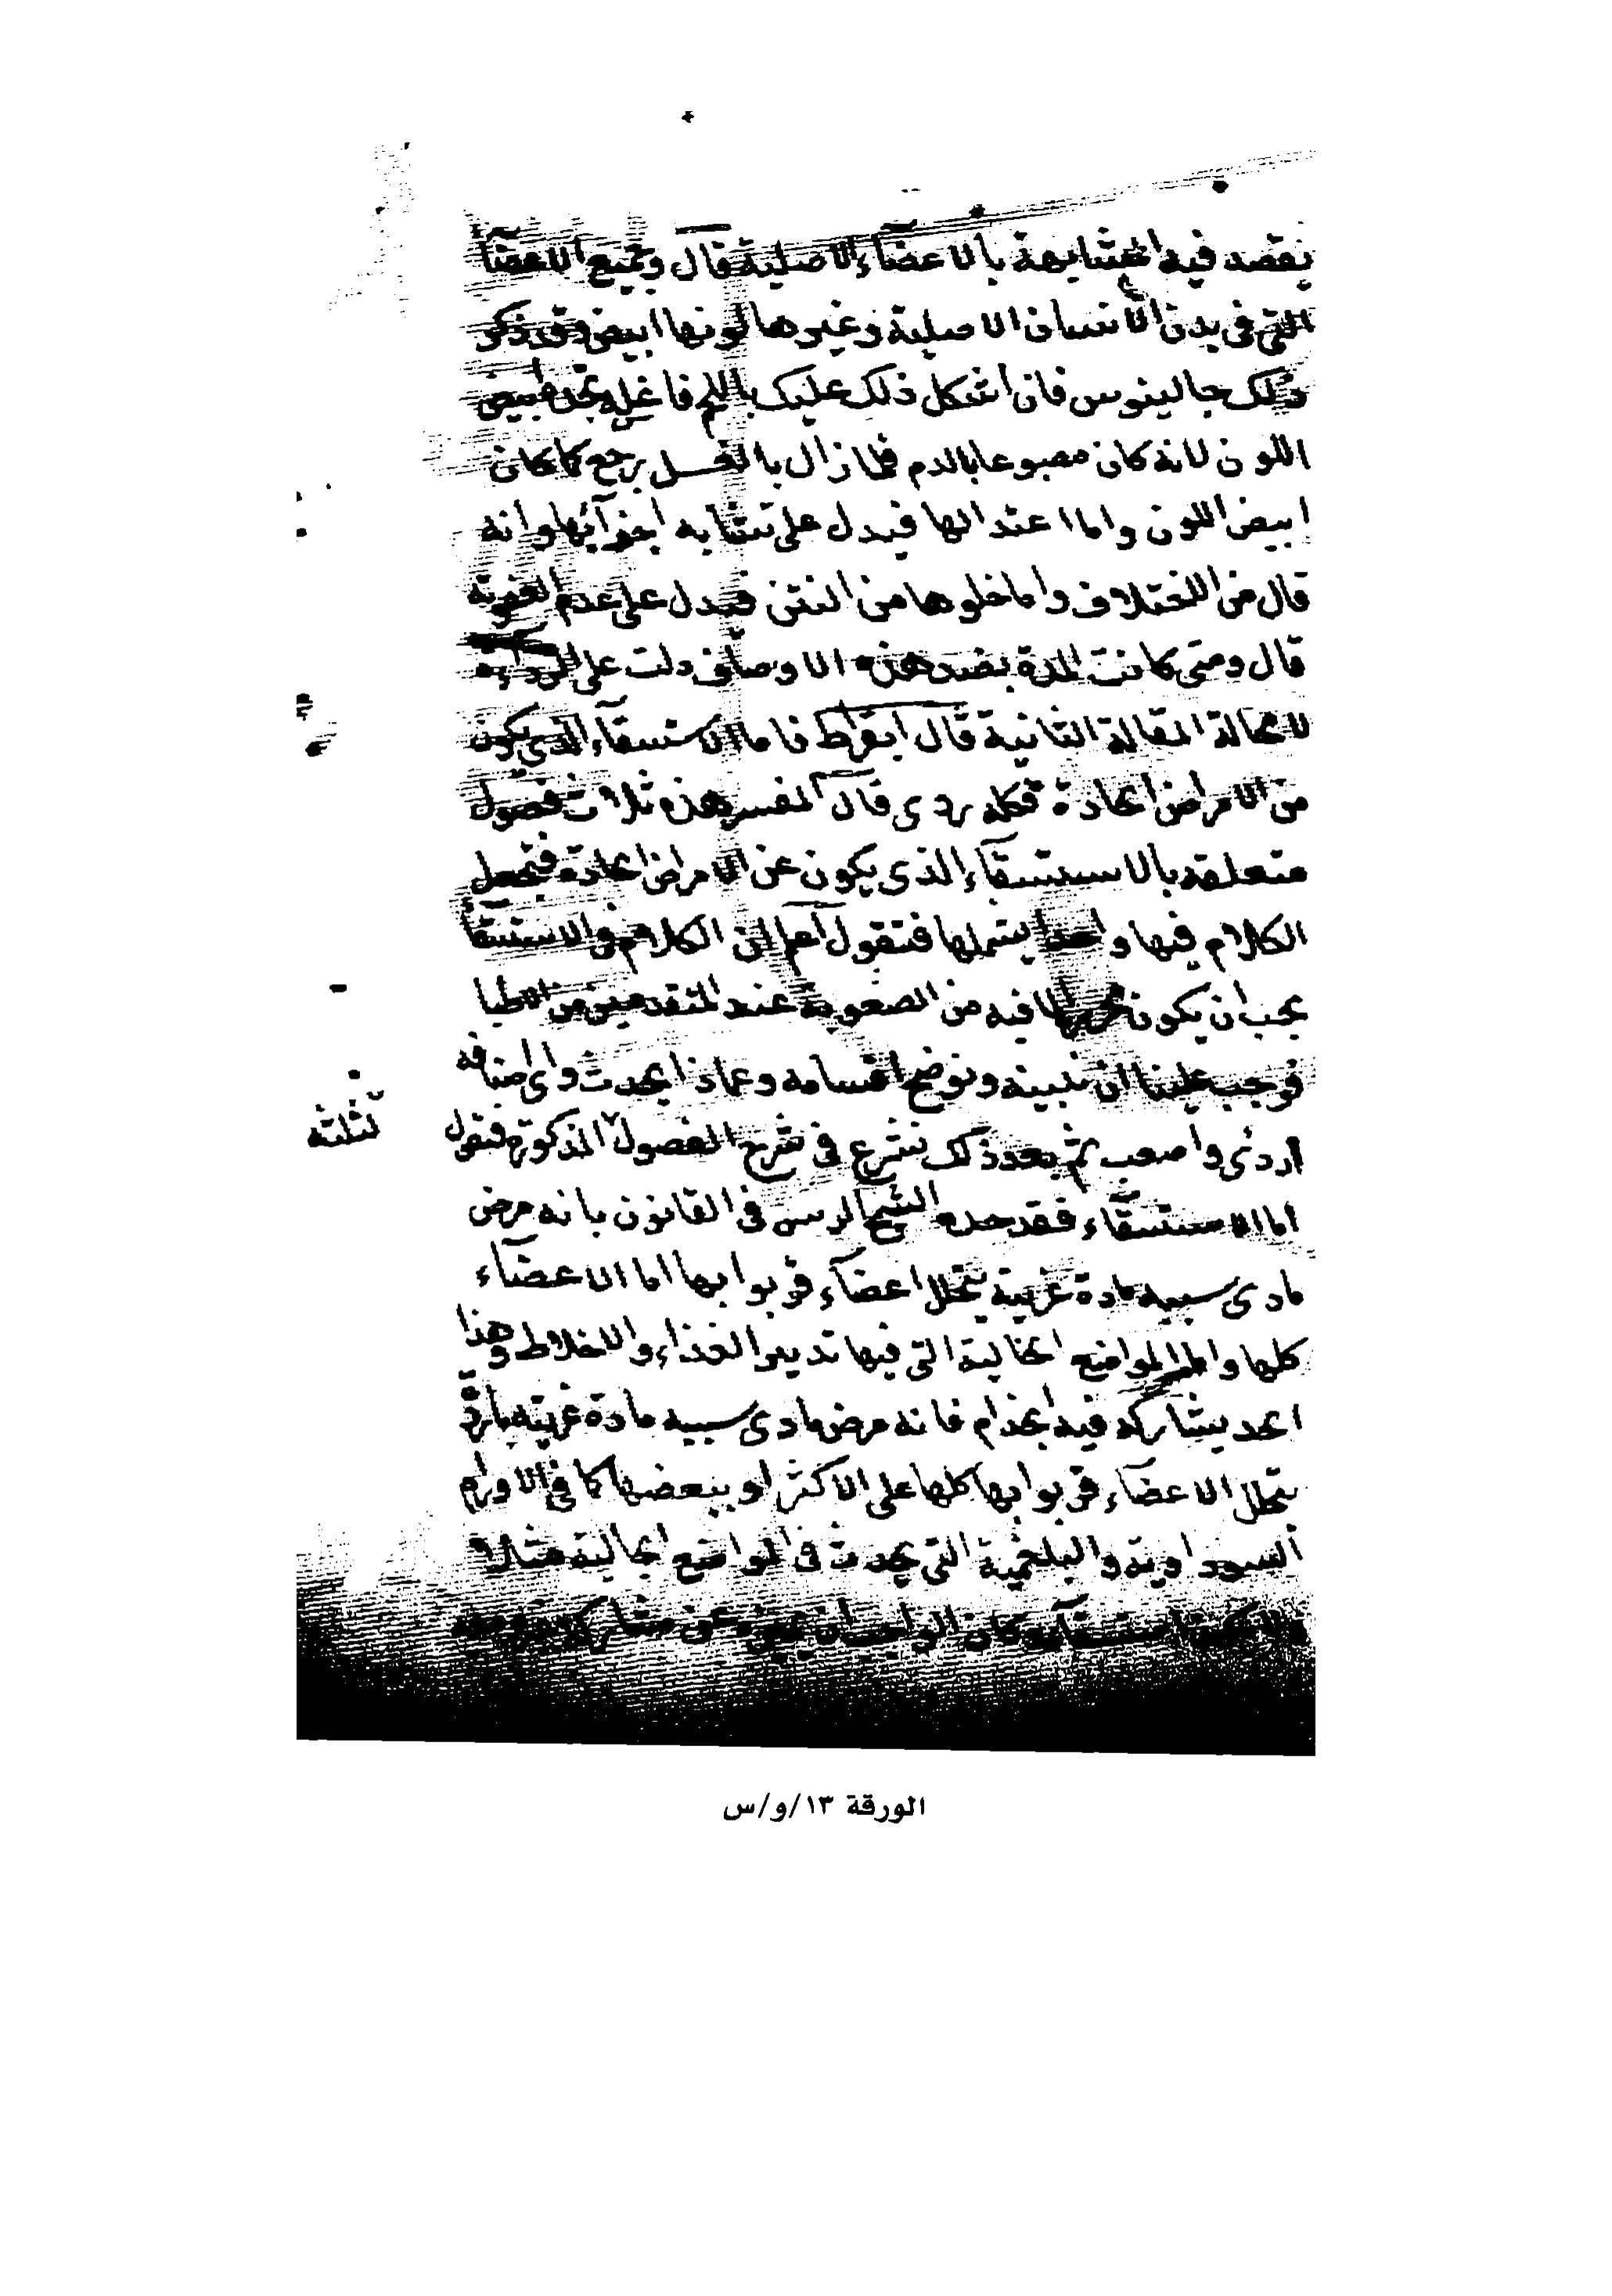 يقصد فيه المشابهة بالاعضآء الاصلية قال وجميع الاعضآ
التى فى بدن الانسان الاصلية وغيرها لونها ابيض وقد ذكر
ذلك جالينوس فان اشكل ذلك عليك باللحم فاغسله تجده ابيض
اللون لانه كان مصبوغا بالدم فلما زال بالغسل رجع كما كان
ابيض اللون واما اعتدالها فيدل على تشابه اجزآئها وانه
قال من الاختلاف واما خلوها من النتن فيدل على عدم العفونة
قال ومتى كانت المدة بضد هذه الاوصاف دلت على الرداءة
لا محالة المقالة الثانية قال ابقراط فاما الاستسقآء الذى يكون
من الامراض الحادة فكله ردى قال المفسر هذه ثلاث فصول
متعلقة بالاستسقآء الذى يكون عن الامراض الحادة فنجعل
الكلام فيها واحدا يشملها فنقول اعلم ان الكلام فى الاستسقآ
يجب ان يكون لما فيه من الصعوبة عند المتقدمين من الاطبا
فوجب علينا ان نبينه ونوضح اقسامه وعماذا يحدث واى اصنافه
اردى واصعب ثم بعد ذلك نشرع فى شرح الفصول المذكورة فنقول
ثلثته
اما الاستسقآء فقد حده الشيخ الريس فى القانون بانه مرض
مادى سببه مادة غريبة تتخلل اعضآء فتربوا بها اما الاعضآء
كلها واما المواضع الخالية التى فيها تدبير الغذاء والاخلاط وهذا
الحد يشاركه فيه الجذام فانه مرض مادى سببه مادة غريبة باردة
تتخلل الاعضآء فتربوا بها كلها على الاكثر او ببعضها كما فى الاورام
السوداوية والبلغمية التى تحدث فى المواضع الخالية مثلا
استسقآء وكان الواجب ان
الورقة ١٣/و/س